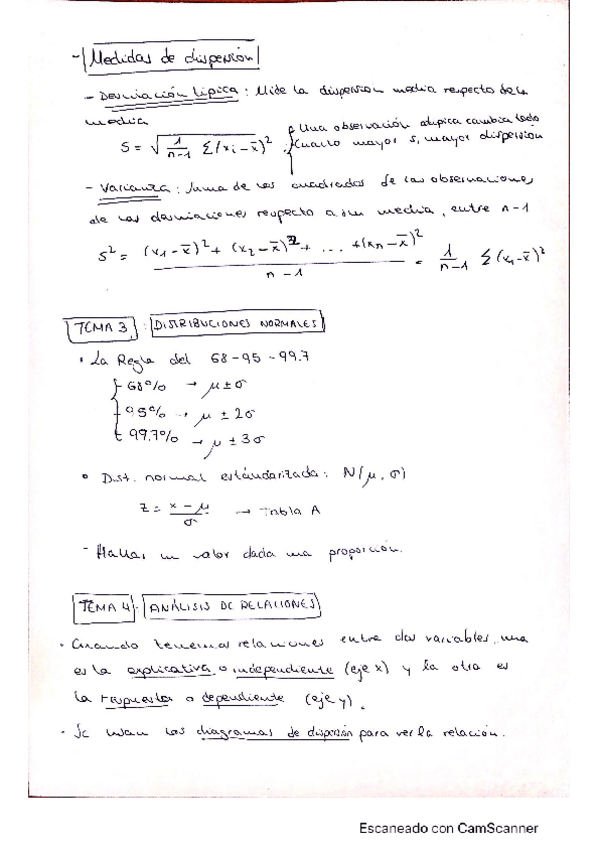 - Medidas de dispersión
- Desviación típica : Mide la dispersion media respecto de la
media
S = √ 1/n-1 Σ(xi - x̄)²
Una observación atípica cambia todo
Cuanto mayor s, mayor dispersion
- Varianza : suma de los cuadrados de las observaciones
de las desviaciones respecto a su media, entre n-1
S² = (x1 - x̄)² + (x2 - x̄)² + ... + (xn - x̄)² / n - 1 = 1/n-1 Σ(x1 - x̄)²
TEMA 3 : DISTRIBUCIONES NORMALES
• La Regla del 68-95-99.7
68% → μ ± σ
95% → μ ± 2σ
99.7% → μ ± 3σ
• Dist. normal estándarizada: N(μ, σ)
Z = x - μ / σ → Tabla A
- Hallar un valor dada una proporción.
TEMA 4. ANÁLISIS DE RELACIONES
• Cuando tenemos relaciones entre dos variables, una
es la explicativa o independiente (eje x) y la otra es
la respuesta o dependiente (eje y).
• Se usan los diagramas de dispersión para ver la relación.
Escaneado con CamScanner